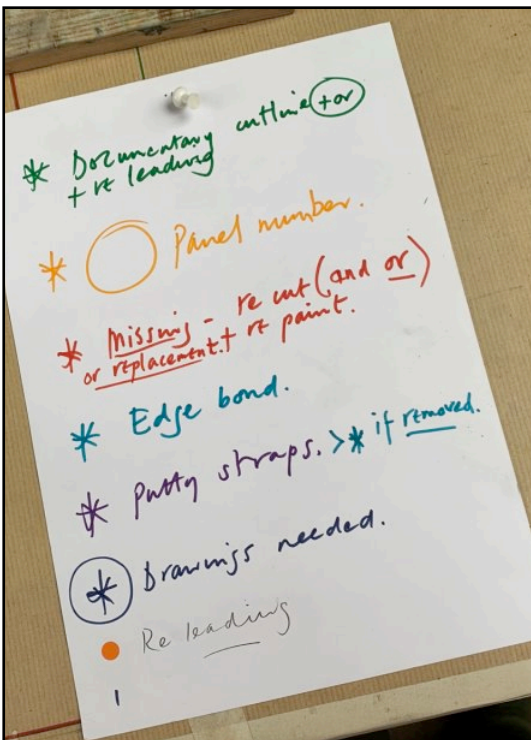 * Documentary outline + or
+ re leading
* Panel number.
* Missing - re cut (and or)
or replacement. + re paint.
* Edge bond.
* Putty straps. > * if removed.
* Drawings needed.
Re leading